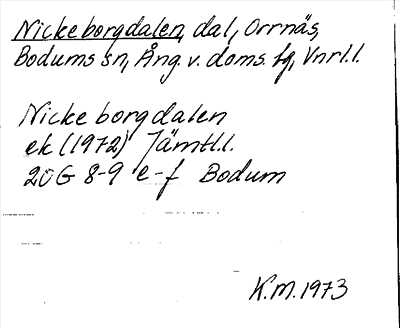 Nickeborgdalen, dal, Orrnäs,
Bodums sn, Ång. v. doms. fg, Vnrl.l.
Nickeborgdalen
ek (1972) Jämtl.l.
20G 8-9 e-f Bodum
K.M. 1973